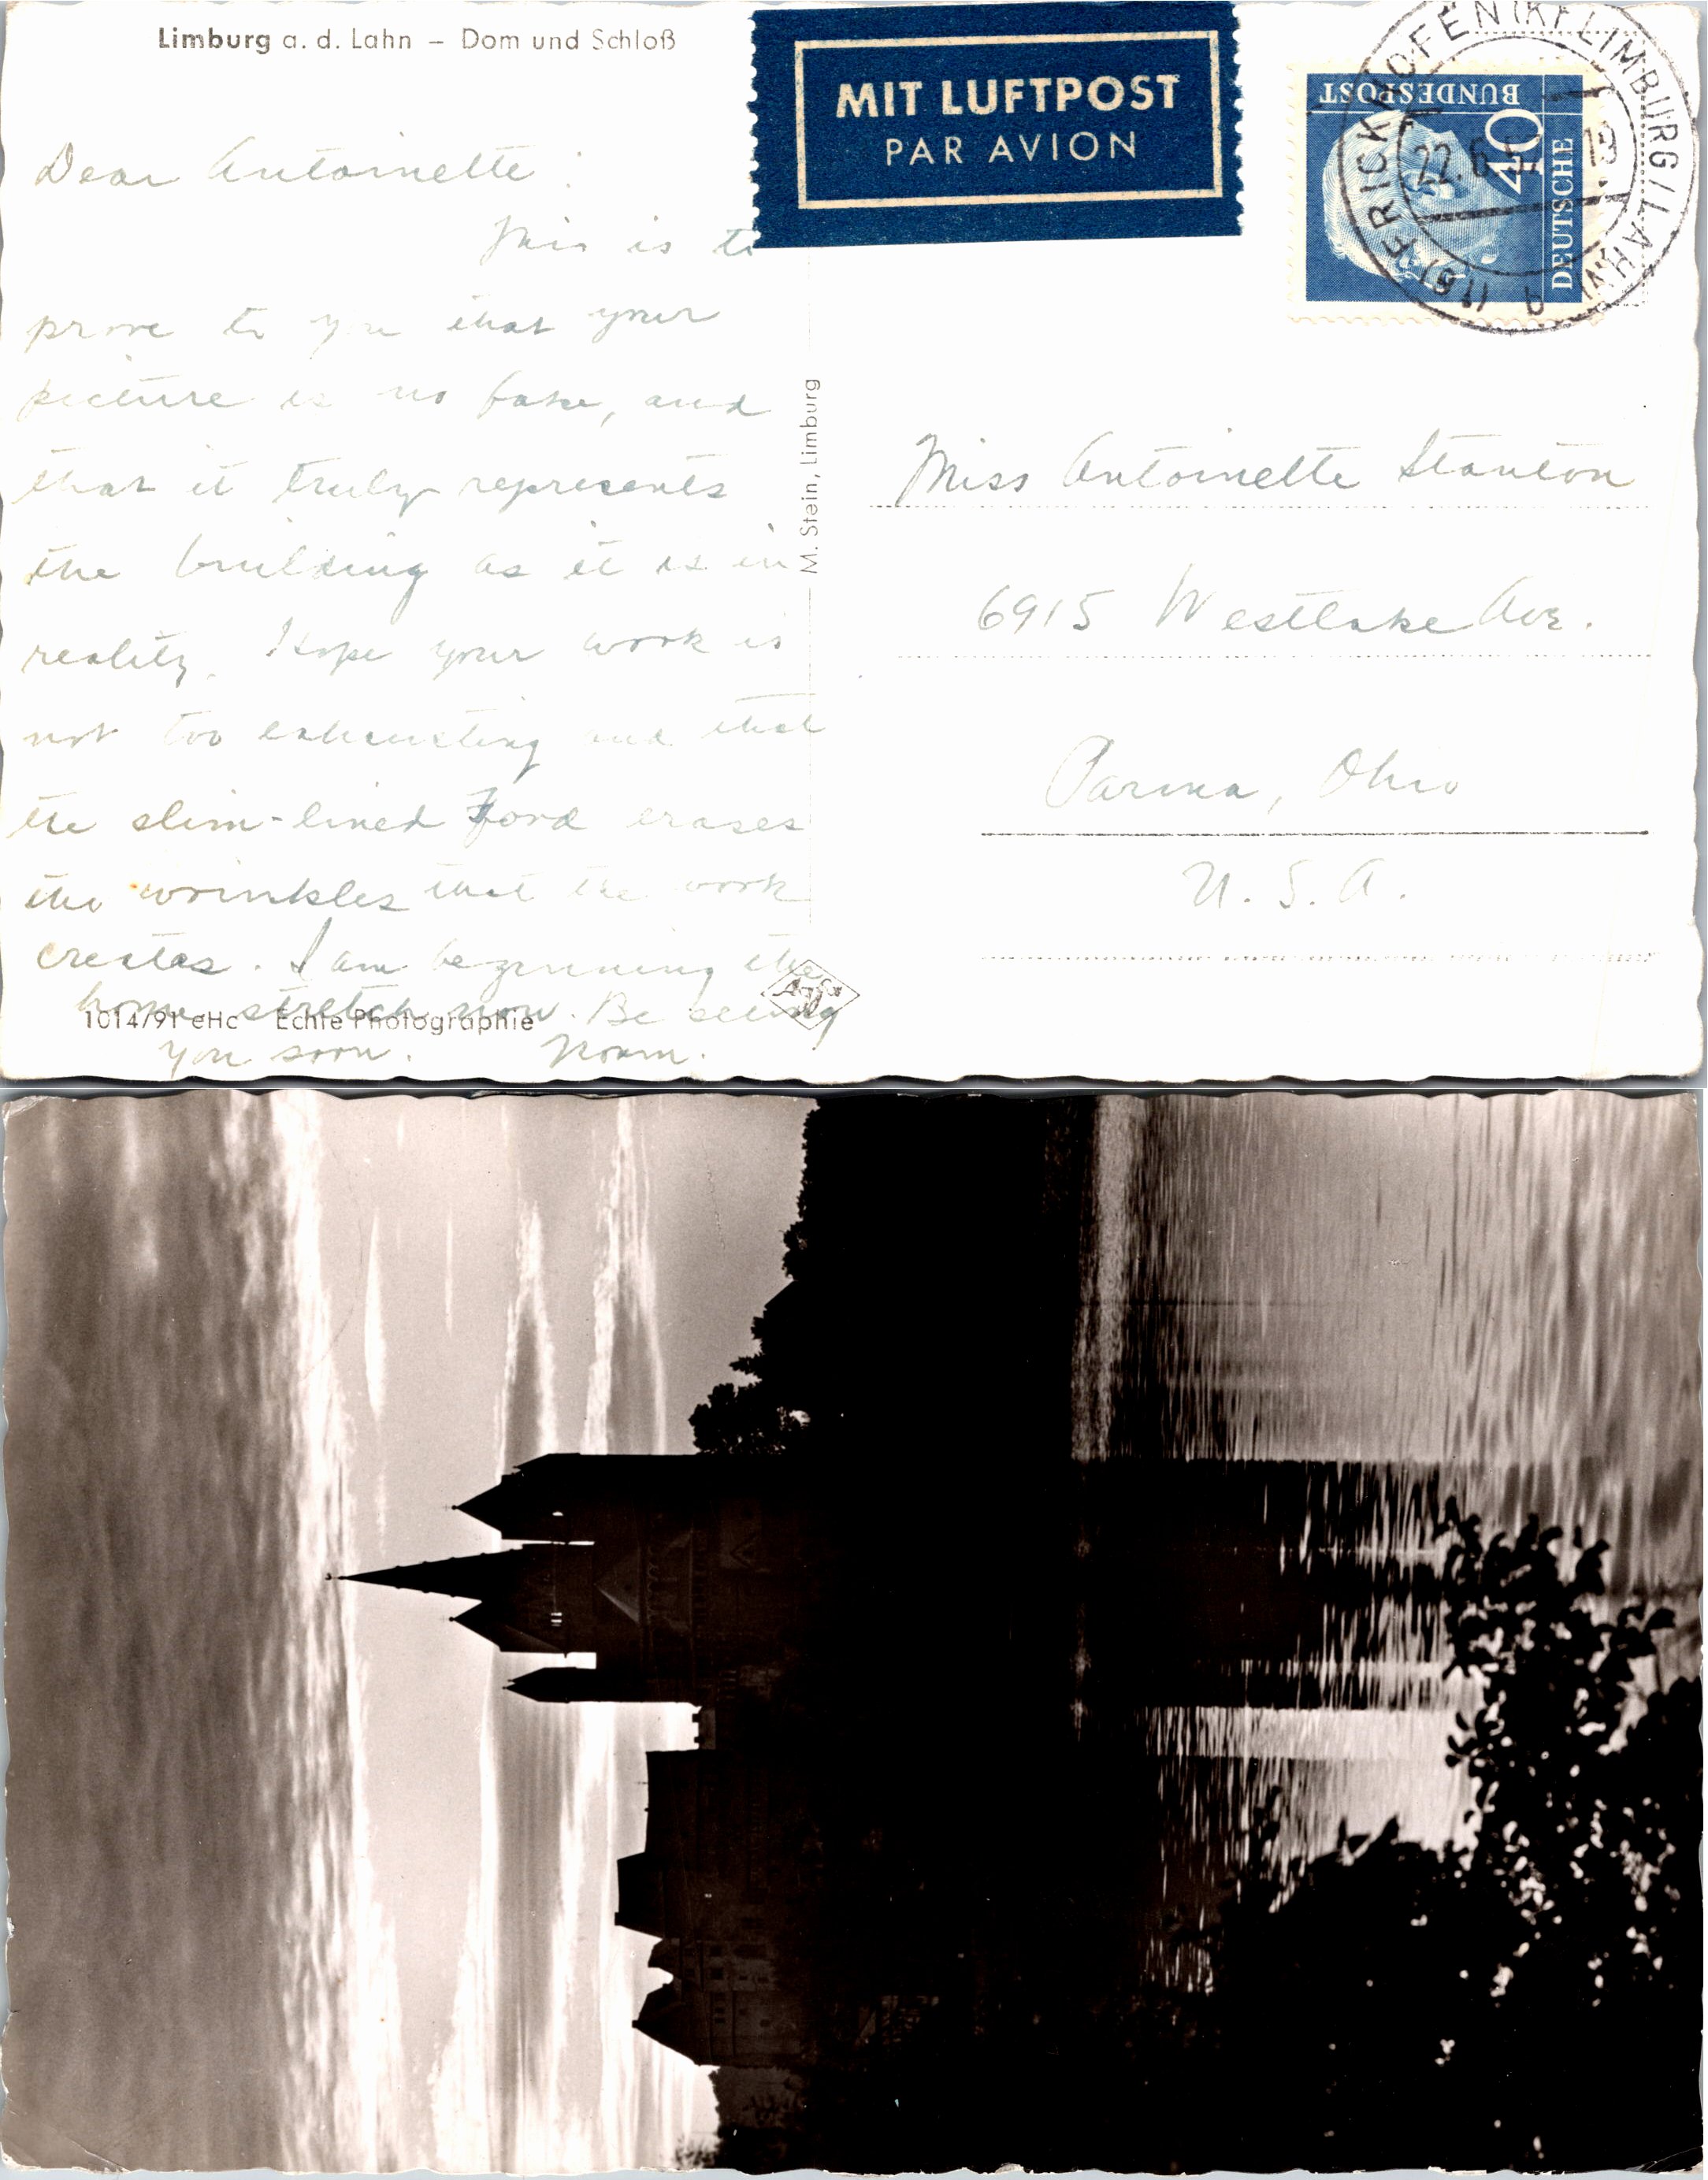 Limburg a. d. Lahn – Dom und Schloß
MIT LUFTPOST
PAR AVION
DEUTSCHE
BUNDESPOST
40
(16) FRICKHOFEN (KR. LIMBURG/LAHN)
22.6.57
19
b
Dear Antoinette:
This is to
prove to you that your
picture is no fake, and
that it truly represents
the building as it is in
reality. Hope your work is
not too exhausting and that
the slim-lined Ford erases
the wrinkles that the work
creates. I am beginning the
home stretch now. Be seeing
you soon. Norm.
1014/91 eHc Echte Photographie
M. Stein, Limburg
Agfa
Miss Antoinette Stanton
6915 Westlake Ave.
Parma, Ohio
U. S. A.